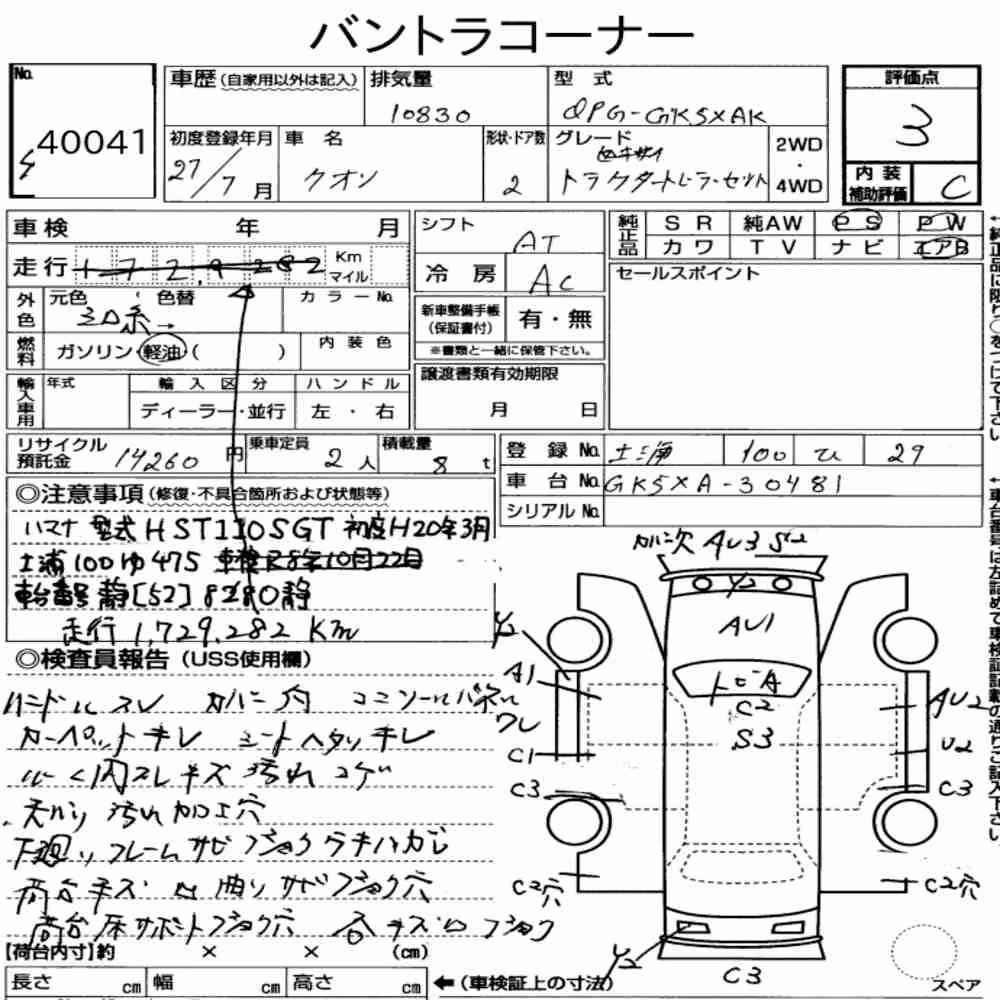 バントラコーナー
No. 40041
車歴 (自家用以外は記入)
排気量 10830
型式 QPG-GK5XAK
評価点 3
内装補助評価 C
初度登録年月 27/7月
車名 クオン
形状・ドア数 2
グレード トラクタートレーラーセット
2WD・4WD
車検 年 月
走行 172,9282 Km マイル
シフト AT
冷房 AC
純正品 SR 純AW PS PW
カワ TV ナビ エアB
セールスポイント
外色 元色 シロ系→ 色替 カラーNo.
新車整備手帳(保証書付) 有・無
※書類と一緒に保管下さい。
燃料 ガソリン・軽油・( ) 内装色
譲渡書類有効期限 月 日
輸入車用 年式 輸入区分 ハンドル
ディーラー・並行 左・右
リサイクル預託金 14260円
乗車定員 2人
積載量 8t
登録No. 土浦 100 ひ 29
車台No. GK5XA-30481
シリアルNo.
◎注意事項 (修復・不具合箇所および状態等)
ハマナ 型式HST110SGT 初度H20年3月
土浦100ゆ475 車検R8年10月22日
車台番号 静[52]8280静
走行 1,729,282 Km
◎検査員報告 (USS使用欄)
ハンドルスレ カバー内 コンソールパネル ワレ
カーペットキレ シートヘタリキレ
内スレキズ 汚れ コゲ
天バリ 汚れ 加工穴
下廻り フレームサビフショク ラチハガレ
荷台キズ 凹 曲り サビフショク穴
荷台床サポートフショク穴
【荷台内寸】約 × × (cm)
長さ cm 幅 cm 高さ cm
←(車検証上の寸法)
AU3 S2
Y2
AU1
トビA
C2
S3
Y2
A1
C1
C3
C2穴
AU2
U2
C3
C2穴
Y2
C3
スペア
←純正品に限り○をつけて下さい。
←車台番号は左詰めで車検証記載の通りご記入下さい。